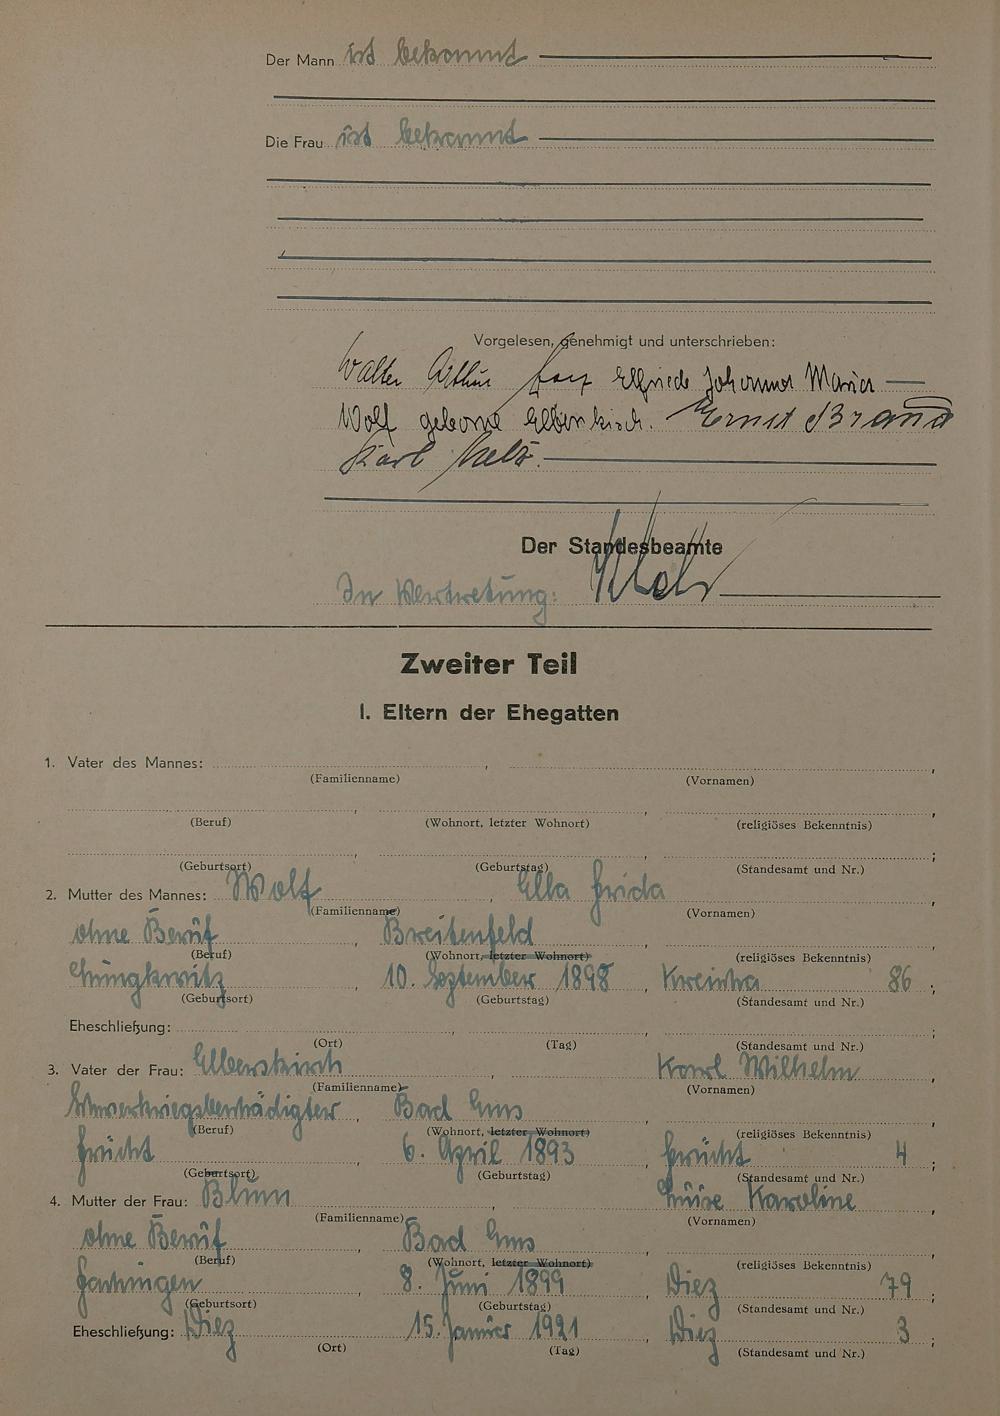 Der Mann ist bekannt
Die Frau ist bekannt
Vorgelesen, genehmigt und unterschrieben:
Walter Arthur Elfriede Johanna Maria
Wolf geborene Elberskirch. Ernst Brand
Karl
Der Standesbeamte
In Vertretung:
Zweiter Teil
I. Eltern der Ehegatten
1. Vater des Mannes: , ,
(Familienname) (Vornamen)
, , ,
(Beruf) (Wohnort, letzter Wohnort) (religiöses Bekenntnis)
, , ;
(Geburtsort) (Geburtstag) (Standesamt und Nr.)
2. Mutter des Mannes: Wolf , Ella Frida ,
(Familienname) (Vornamen)
ohne Beruf , Breitenfeld , ,
(Beruf) (Wohnort, letzter Wohnort) (religiöses Bekenntnis)
, 10. September 1898 , Kreinha 86 ;
(Geburtsort) (Geburtstag) (Standesamt und Nr.)
Eheschließung: , , ;
(Ort) (Tag) (Standesamt und Nr.)
3. Vater der Frau: Elberskirch , Karl Wilhelm ,
(Familienname) (Vornamen)
Schwerkriegsbeschädigter , Bad Ems , ,
(Beruf) (Wohnort, letzter Wohnort) (religiöses Bekenntnis)
Frücht , 6. April 1893 , Frücht 4 ;
(Geburtsort) (Geburtstag) (Standesamt und Nr.)
4. Mutter der Frau: Blum , Luise Karoline ,
(Familienname) (Vornamen)
ohne Beruf , Bad Ems , ,
(Beruf) (Wohnort, letzter Wohnort) (religiöses Bekenntnis)
Fachingen , 8. Juni 1899 , Diez 79 ;
(Geburtsort) (Geburtstag) (Standesamt und Nr.)
Eheschließung: Diez , 15. Januar 1921 , Diez 3 ;
(Ort) (Tag) (Standesamt und Nr.)